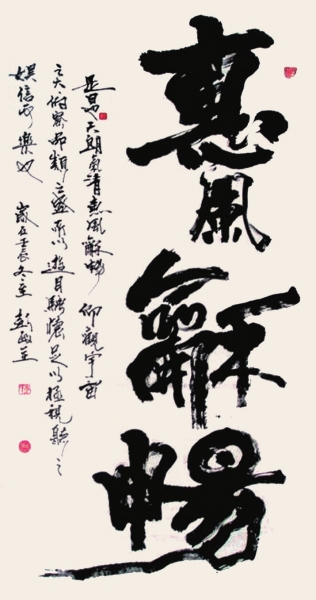 惠風龢暢
是日也天朗氣清惠風龢暢仰觀宇宙
之大俯察品類之盛所以遊目騁懷足以極視聽之
娛信可樂也 歲在壬辰冬至